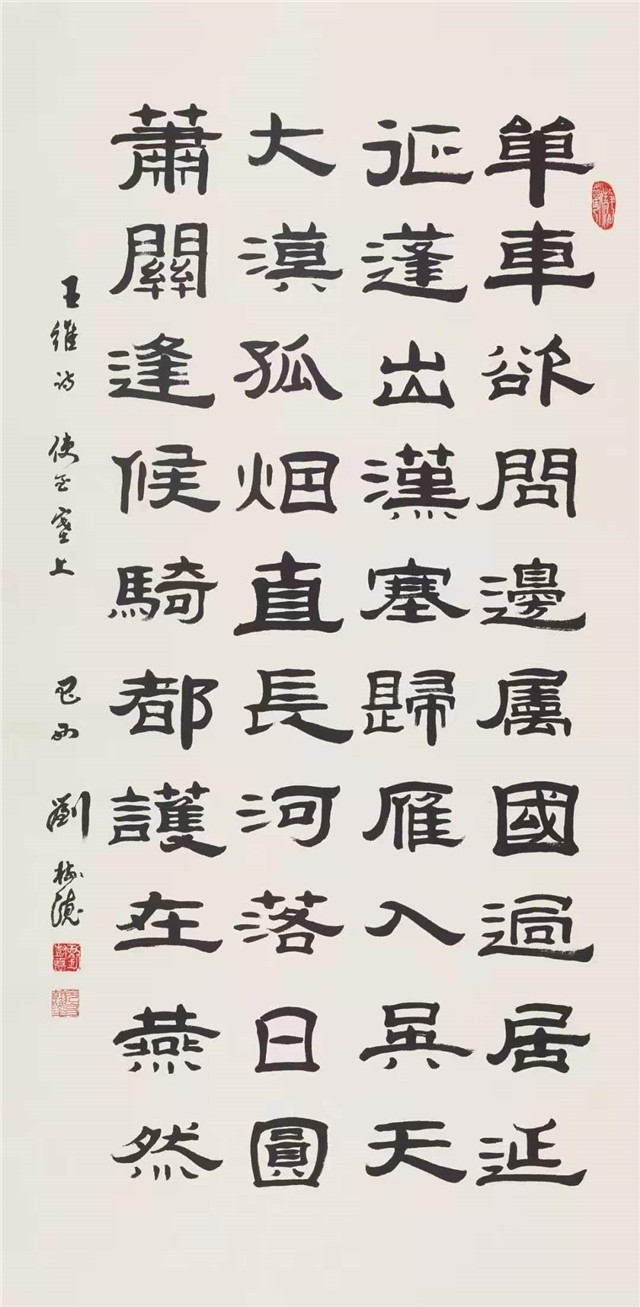 单車欲問邊屬國過居延
征蓬出漢塞歸雁入吳天
大漠孤烟直長河落日圓
蕭關逢候騎都護在燕然
王維诗 使至塞上 巴西 劉